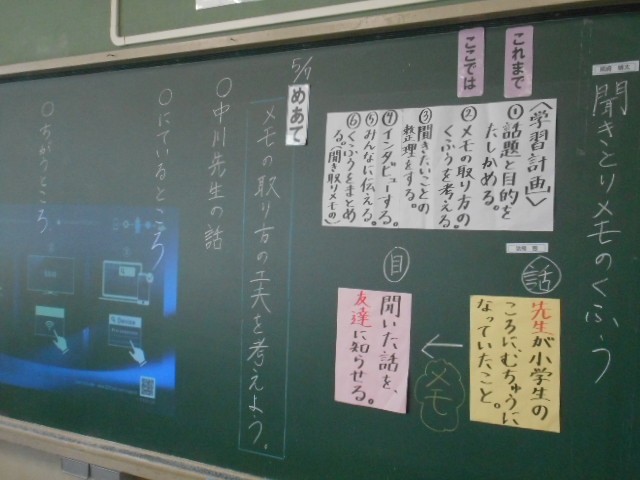 聞きとりメモのくふう
これまで
ここでは
〈学習計画〉
①話題と目的を
たしかめる。
②メモの取り方の
くふうを考える。
③聞きたいことの
整理をする。
④インタビューする。
⑤みんなに伝える。
⑥くふうをまとめ
る。(聞き取りメモの)
話
先生が小学生の
ころに、むちゅうに
なっていたこと。
メモ
目
聞いた話を、
友達に知らせる。
めあて
メモの取り方の工夫を考えよう。
○中川先生の話
○にているところ
○ちがうところ